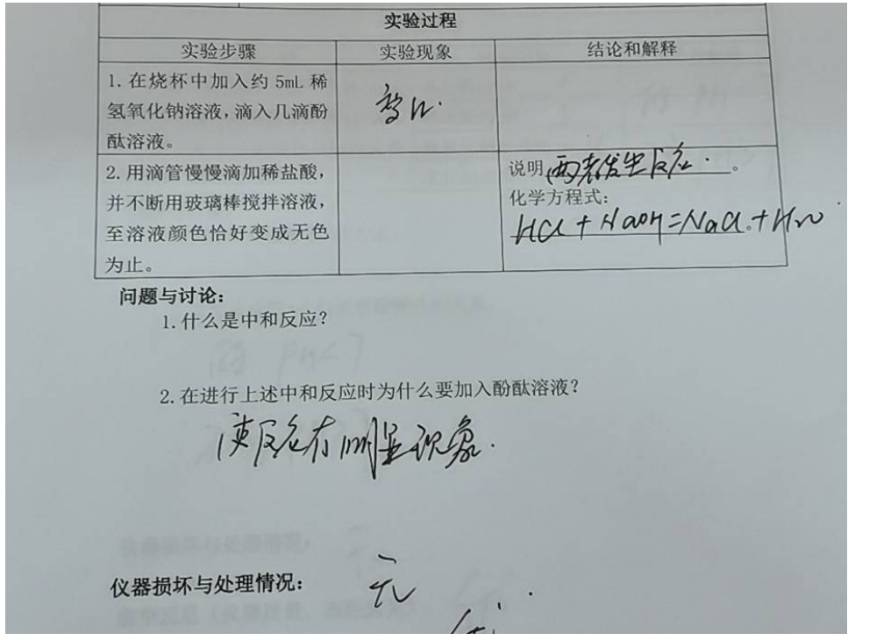 实验过程
实验步骤 实验现象 结论和解释
1.在烧杯中加入约 5mL 稀
氢氧化钠溶液，滴入几滴酚
酞溶液。
变红.
2.用滴管慢慢滴加稀盐酸，
并不断用玻璃棒搅拌溶液，
至溶液颜色恰好变成无色
为止。
说明两者发生反应.。
化学方程式：
HCl + NaOH = NaCl + H₂O
问题与讨论：
1.什么是中和反应？
2.在进行上述中和反应时为什么要加入酚酞溶液？
使反应有明显现象.
仪器损坏与处理情况：
无